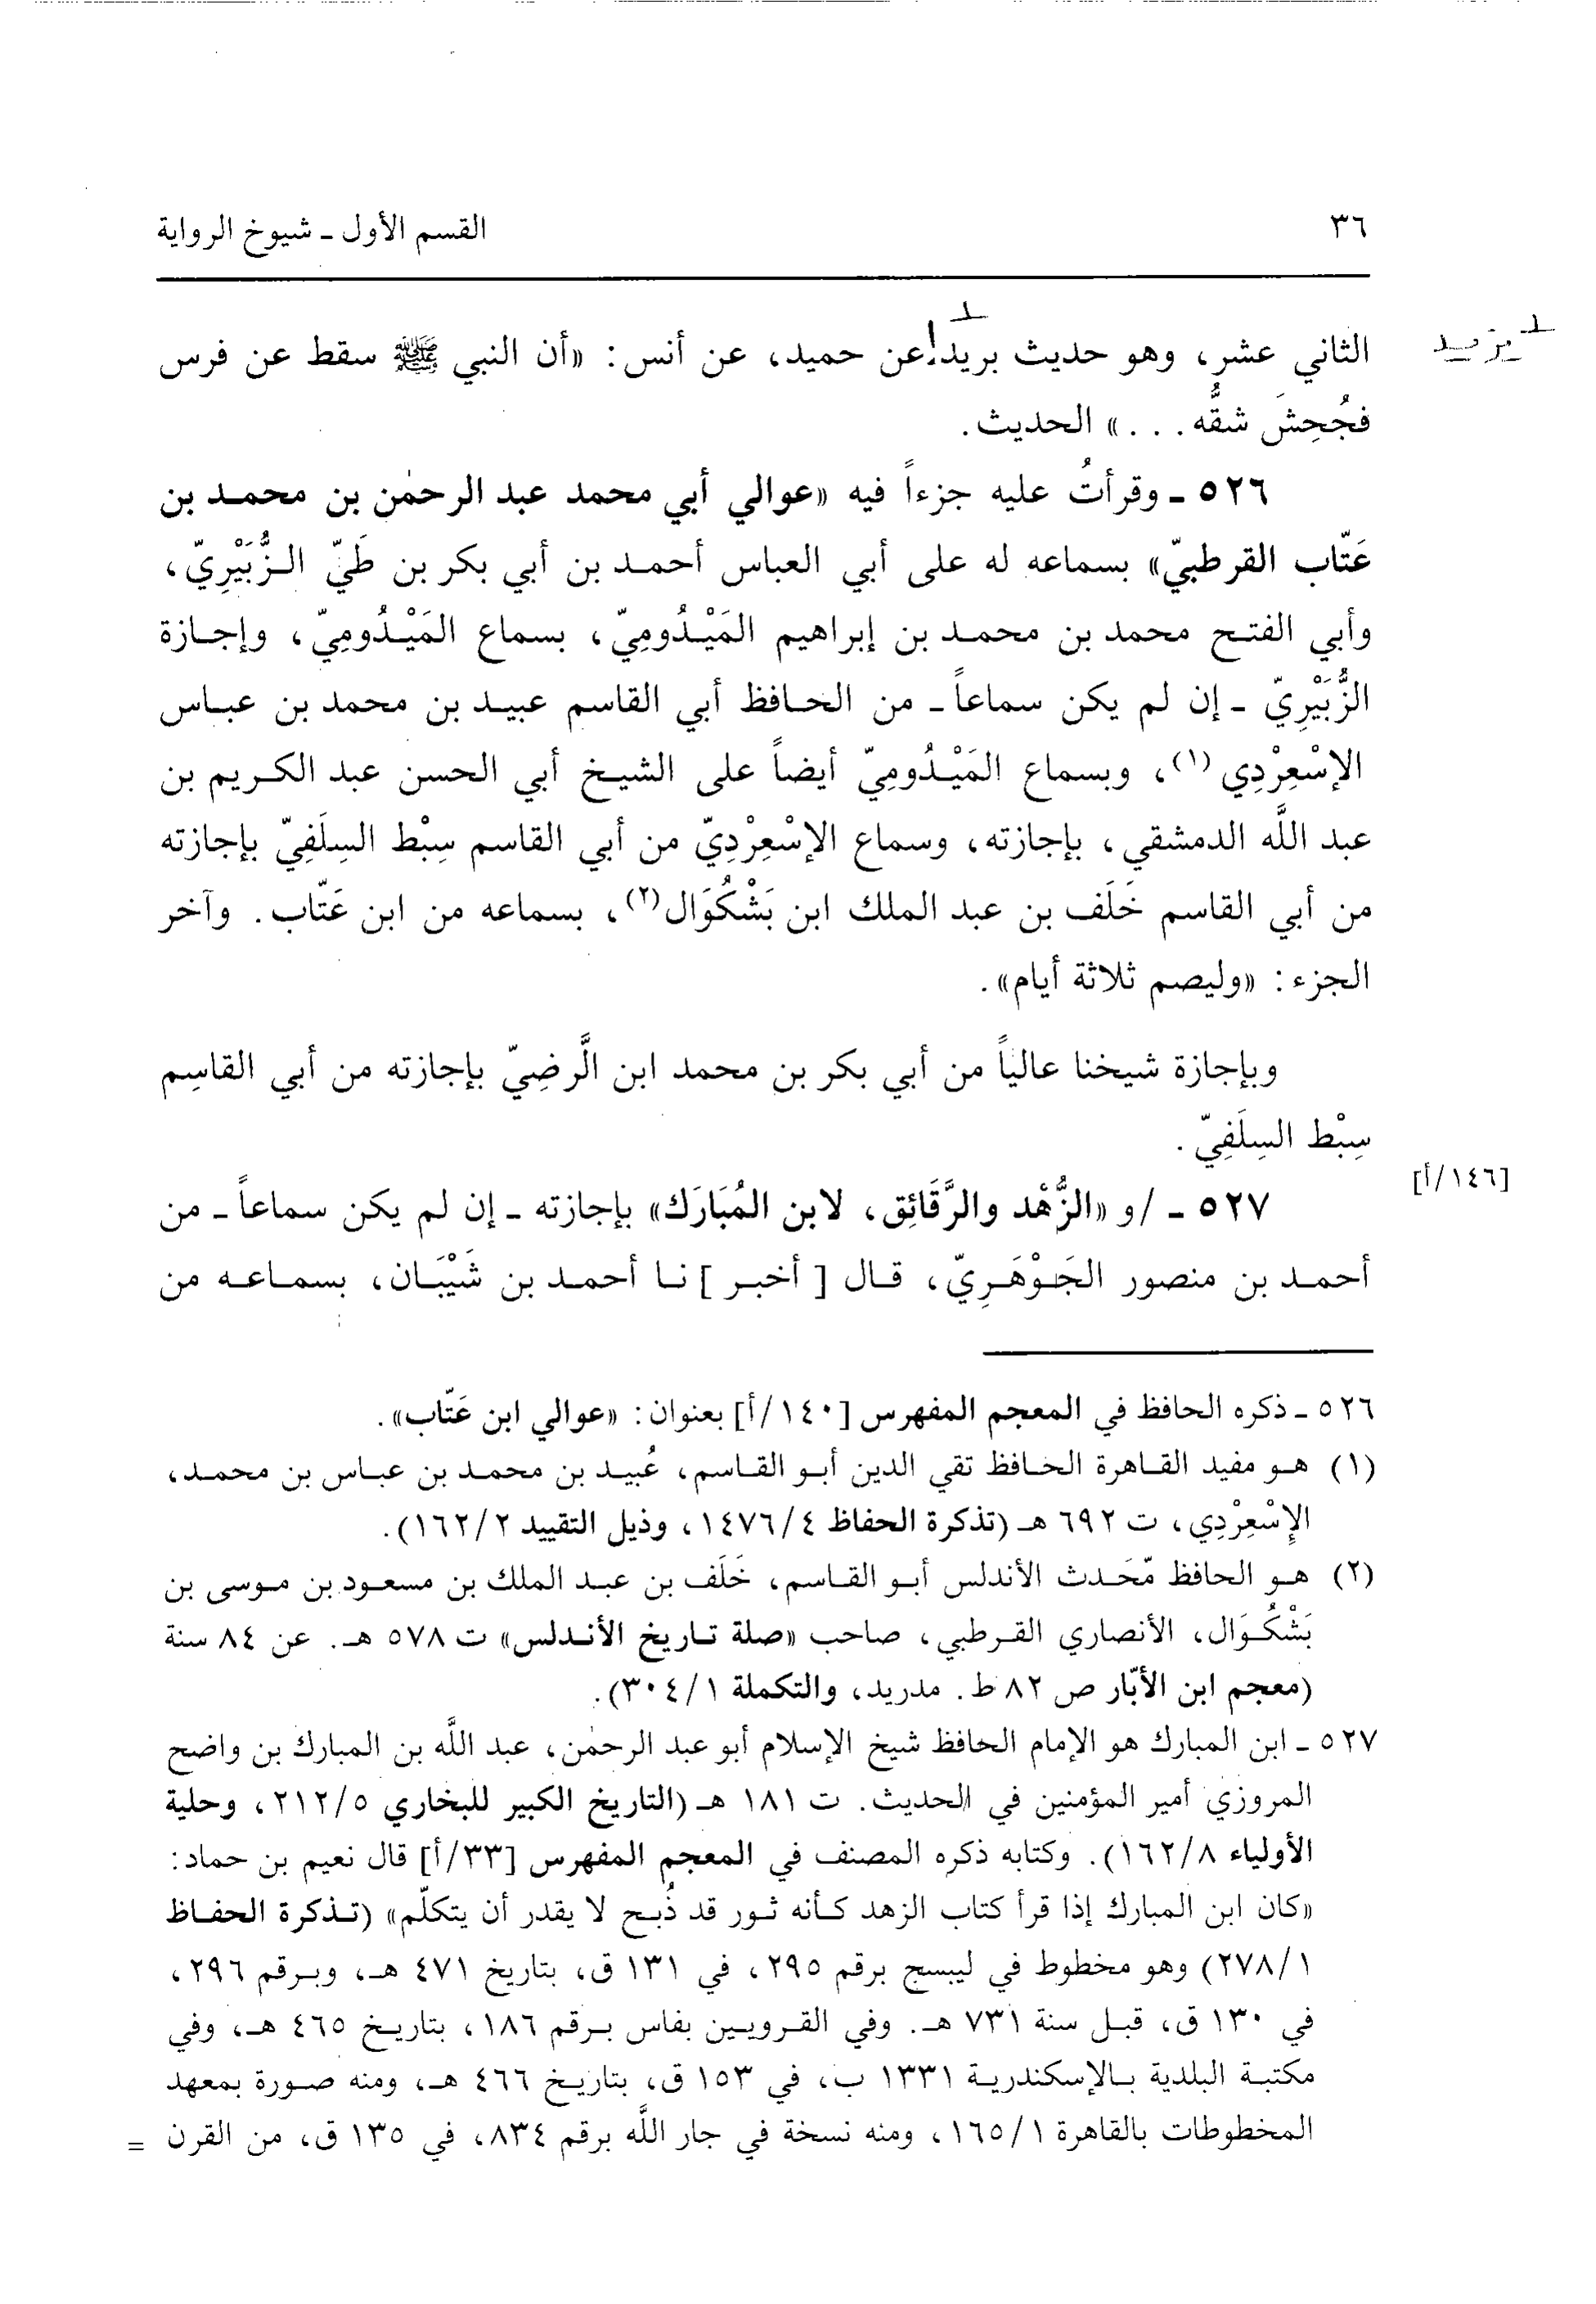 ٣٦
القسم الأول ـ شيوخ الرواية
الثاني عشر، وهو حديث بريد عن حميد، عن أنس: «أن النبي ﷺ سقط عن فرس
يزيد
فجُحِشَ شقُّه . . .» الحديث.
٥٢٦ ـ وقرأتُ عليه جزءاً فيه «عوالي أبي محمد عبد الرحمٰن بن محمد بن
عَتّاب القرطبيّ» بسماعه له على أبي العباس أحمد بن أبي بكر بن طَيّ الزُّبَيْرِيّ،
وأبي الفتح محمد بن محمد بن إبراهيم المَيْدُومِيّ، بسماع المَيْدُومِيّ، وإجازة
الزُّبَيْرِيّ ـ إن لم يكن سماعاً ـ من الحافظ أبي القاسم عبيد بن محمد بن عباس
الإسْعِرْدِي (١)، وبسماع المَيْدُومِيّ أيضاً على الشيخ أبي الحسن عبد الكريم بن
عبد اللَّه الدمشقي، بإجازته، وسماع الإسْعِرْدِيّ من أبي القاسم سِبْط السِلَفِيّ بإجازته
من أبي القاسم خَلَف بن عبد الملك ابن بَشْكُوَال(٢)، بسماعه من ابن عَتّاب. وآخر
الجزء: «وليصم ثلاثة أيام».
وبإجازة شيخنا عالياً من أبي بكر بن محمد ابن الَّرضِيّ بإجازته من أبي القاسِم
سِبْط السِلَفِيّ.
[١٤٦/أ]
٥٢٧ ـ /و «الزُّهْد والرَّقَائِق، لابن المُبَارَك» بإجازته ـ إن لم يكن سماعاً ـ من
أحمد بن منصور الجَوْهَرِيّ، قال [أخبر] نا أحمد بن شَيْبَان، بسماعه من
٥٢٦ ـ ذكره الحافظ في المعجم المفهرس [١٤٠/أ] بعنوان: «عوالي ابن عَتّاب».
(١) هو مفيد القاهرة الحافظ تقي الدين أبو القاسم، عُبيد بن محمد بن عباس بن محمد،
الإسْعِرْدِي، ت ٦٩٢ هـ (تذكرة الحفاظ ١٤٧٦/٤، وذيل التقييد ١٦٢/٢).
(٢) هو الحافظ مّحَدث الأندلس أبو القاسم، خَلَف بن عبد الملك بن مسعود بن موسى بن
بَشْكُوَال، الأنصاري القرطبي، صاحب «صلة تاريخ الأندلس» ت ٥٧٨ هـ. عن ٨٤ سنة
(معجم ابن الأبّار ص ٨٢ ط. مدريد، والتكملة ٣٠٤/١).
٥٢٧ ـ ابن المبارك هو الإمام الحافظ شيخ الإسلام أبو عبد الرحمٰن، عبد اللَّه بن المبارك بن واضح
المروزي أمير المؤمنين في الحديث. ت ١٨١ هـ (التاريخ الكبير للبخاري ٢١٢/٥، وحلية
الأولياء ١٦٢/٨). وكتابه ذكره المصنف في المعجم المفهرس [٣٣/أ] قال نعيم بن حماد:
«كان ابن المبارك إذا قرأ كتاب الزهد كأنه ثور قد ذُبح لا يقدر أن يتكلّم» (تذكرة الحفاظ
٢٧٨/١) وهو مخطوط في ليبسج برقم ٢٩٥، في ١٣١ ق، بتاريخ ٤٧١ هـ، وبرقم ٢٩٦،
في ١٣٠ ق، قبل سنة ٧٣١ هـ. وفي القرويين بفاس برقم ١٨٦، بتاريخ ٤٦٥ هـ، وفي
مكتبة البلدية بالإسكندرية ١٣٣١ ب، في ١٥٣ ق، بتاريخ ٤٦٦ هـ، ومنه صورة بمعهد
المخطوطات بالقاهرة ١٦٥/١، ومنه نسخة في جار اللَّه برقم ٨٣٤، في ١٣٥ ق، من القرن =